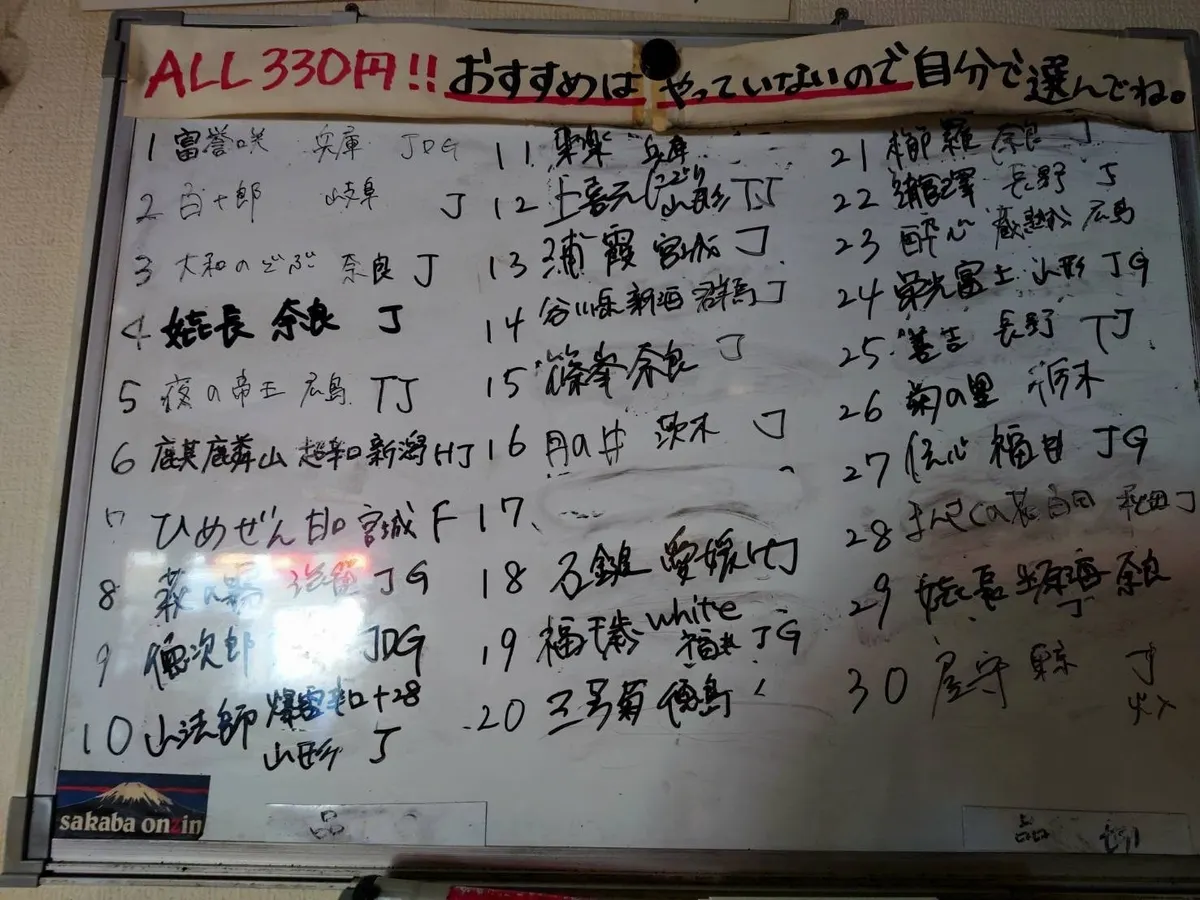 ALL 330円!! おすすめは やっていないので 自分で 選んでね。
1 富誉咲 兵庫 JDG
2 百十郎 岐阜 J
3 大和のどぶ 奈良 J
4 長 奈良 J
5 夜の帝王 広島 TJ
6 麒麟山 超辛口 新潟 HJ
7 ひめぜん 甘口 宮城 F
8 萩の露 滋賀 JG
9 徳次郎 JDG
10 山法師 爆雷辛口+28
山形 J
11 兵庫
12 上喜元 にごり 山形 TJ
13 浦霞 宮城 J
14 谷川岳 新酒 群馬 J
15 篠峯 奈良 J
16 月の井 茨木 J
17
18 石鎚 愛媛 HJ
19 福千歳 white
福井 JG
20 三芳菊 徳島
21 櫛羅 奈良 J
22 瀧澤 長野 J
23 酔心 広島
24 栄光冨士 山形 JG
25 善吉 長野 TJ
26 菊の里 栃木
27 伝心 福井 JG
28 まんさくの花 秋田 J
29 長 奈良
J
30 屋守 東京 J
火入
sakaba onzin
品
品 切